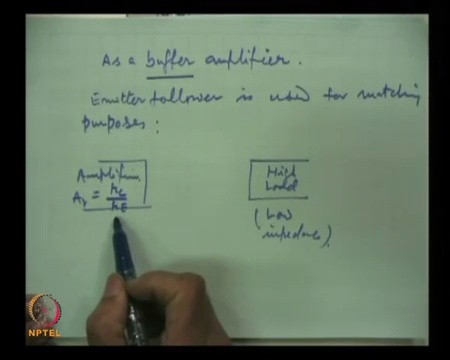 As a buffer amplifier.
Emitter follower is used for matching
purposes:
Amplifier
Av = rc
rE
High
Load
(Low
impedance).
NPTEL